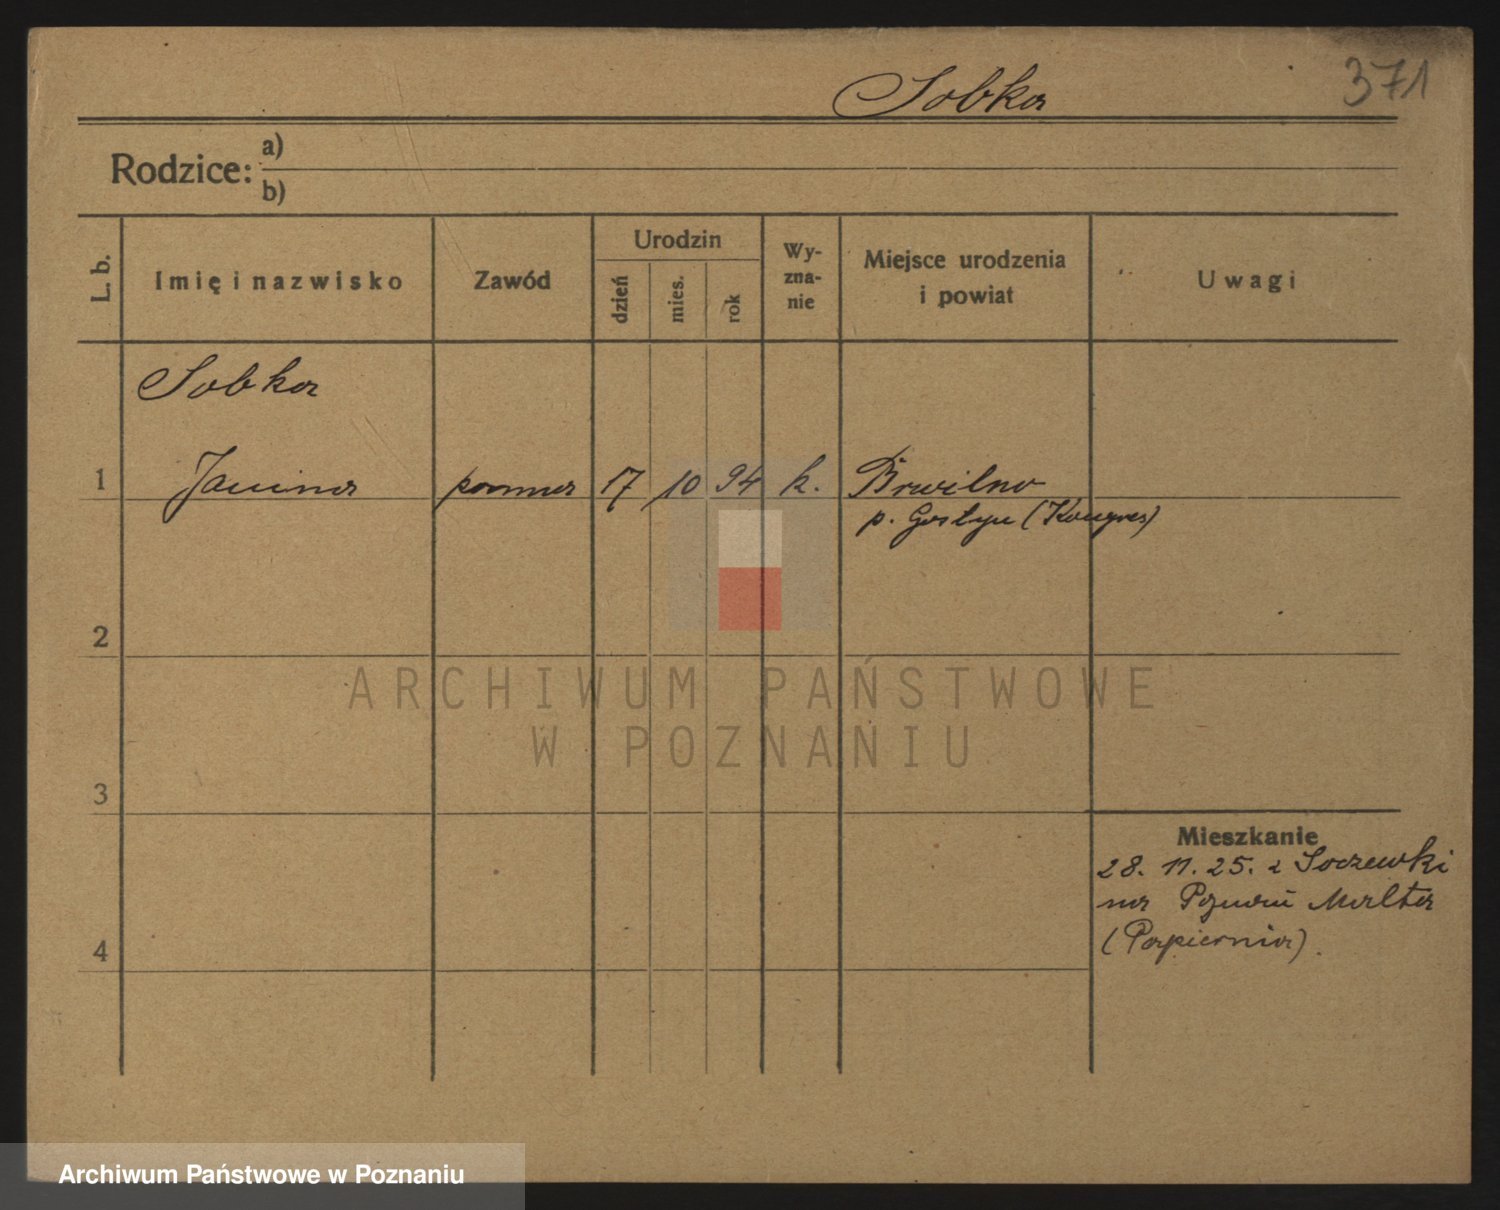 Sobka 371
Rodzice: a)
b)
L. b. Imię i nazwisko Zawód Urodzin dzień mies. rok Wy-zna-nie Miejsce urodzenia i powiat Uwagi
Sobka
1 Janina panna 17 10 94 k. Brwilno
p. Gostyn (Kongres)
2
ARCHIWUM PAŃSTWOWE
W POZNANIU
3
Mieszkanie
28. 11. 25. z Soczewki
na Poznań Malta
4 (Papiernia).
Archiwum Państwowe w Poznaniu